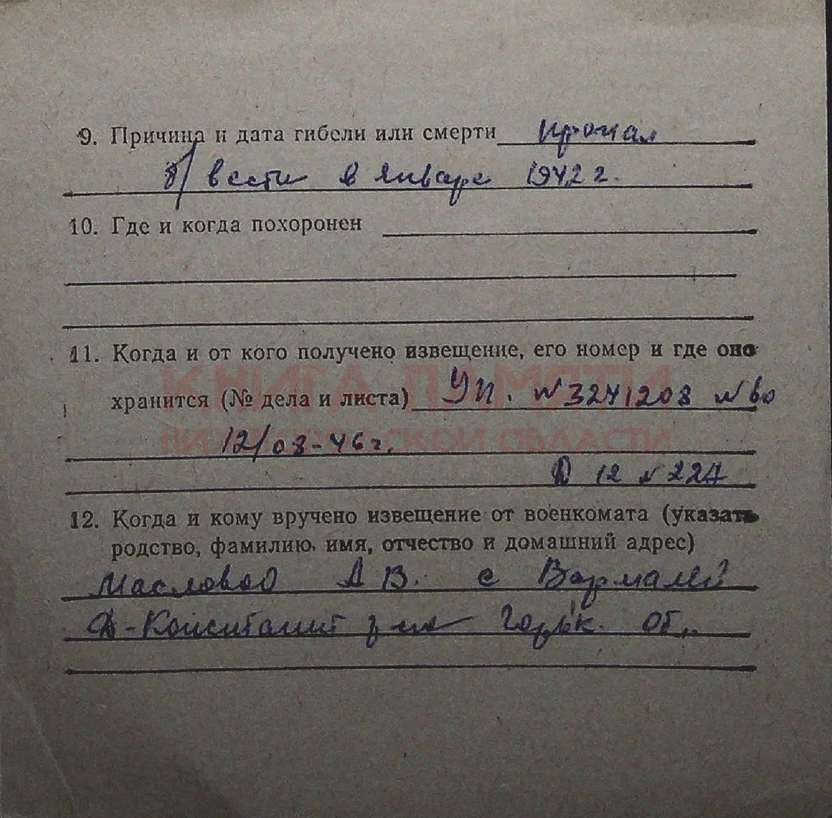 9. Причина и дата гибели или смерти пропал
б/вести в январе 1942 г.
10. Где и когда похоронен
11. Когда и от кого получено извещение, его номер и где оно
КНИГА ПАМЯТИ
хранится (№ дела и листа) УП. №3241208 №60
НИЖЕГОРОДСКОЙ ОБЛАСТИ
12/08-46г.
Д 12 №
12. Когда и кому вручено извещение от военкомата (указать
родство, фамилию, имя, отчество и домашний адрес)
Масловой А В. с Вармалей
Д-Константи Горьк. об.